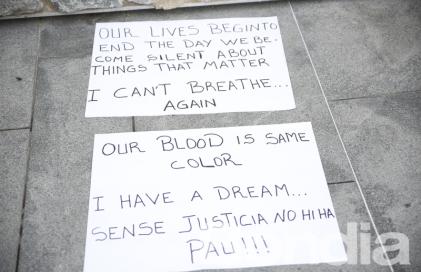 OUR LIVES BEGIN TO
END THE DAY WE BE-
COME SILENT ABOUT
THINGS THAT MATTER
I CAN'T BREATHE...
AGAIN
OUR BLOOD IS SAME
COLOR
I HAVE A DREAM...
SENSE JUSTICIA NO HI HA
PAU!!!
ondia